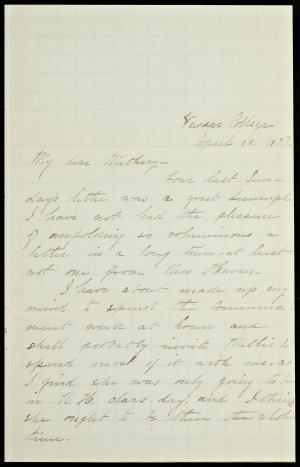 Vassar College
April 22, 1877.
My dear Mothery—
Your last Sun-
day's letter was a great triumph.
I have not had the pleasure
of unfolding so voluminous a
letter in a long time—at least
not one from New Haven.
I have about made up my
mind to spend the commence-
ment week at home and
shall probably invite Nellie to
spend most of it with me, as
I find she was only going to be
in N. H. class-day, and I think
she ought to be there the whole
time.